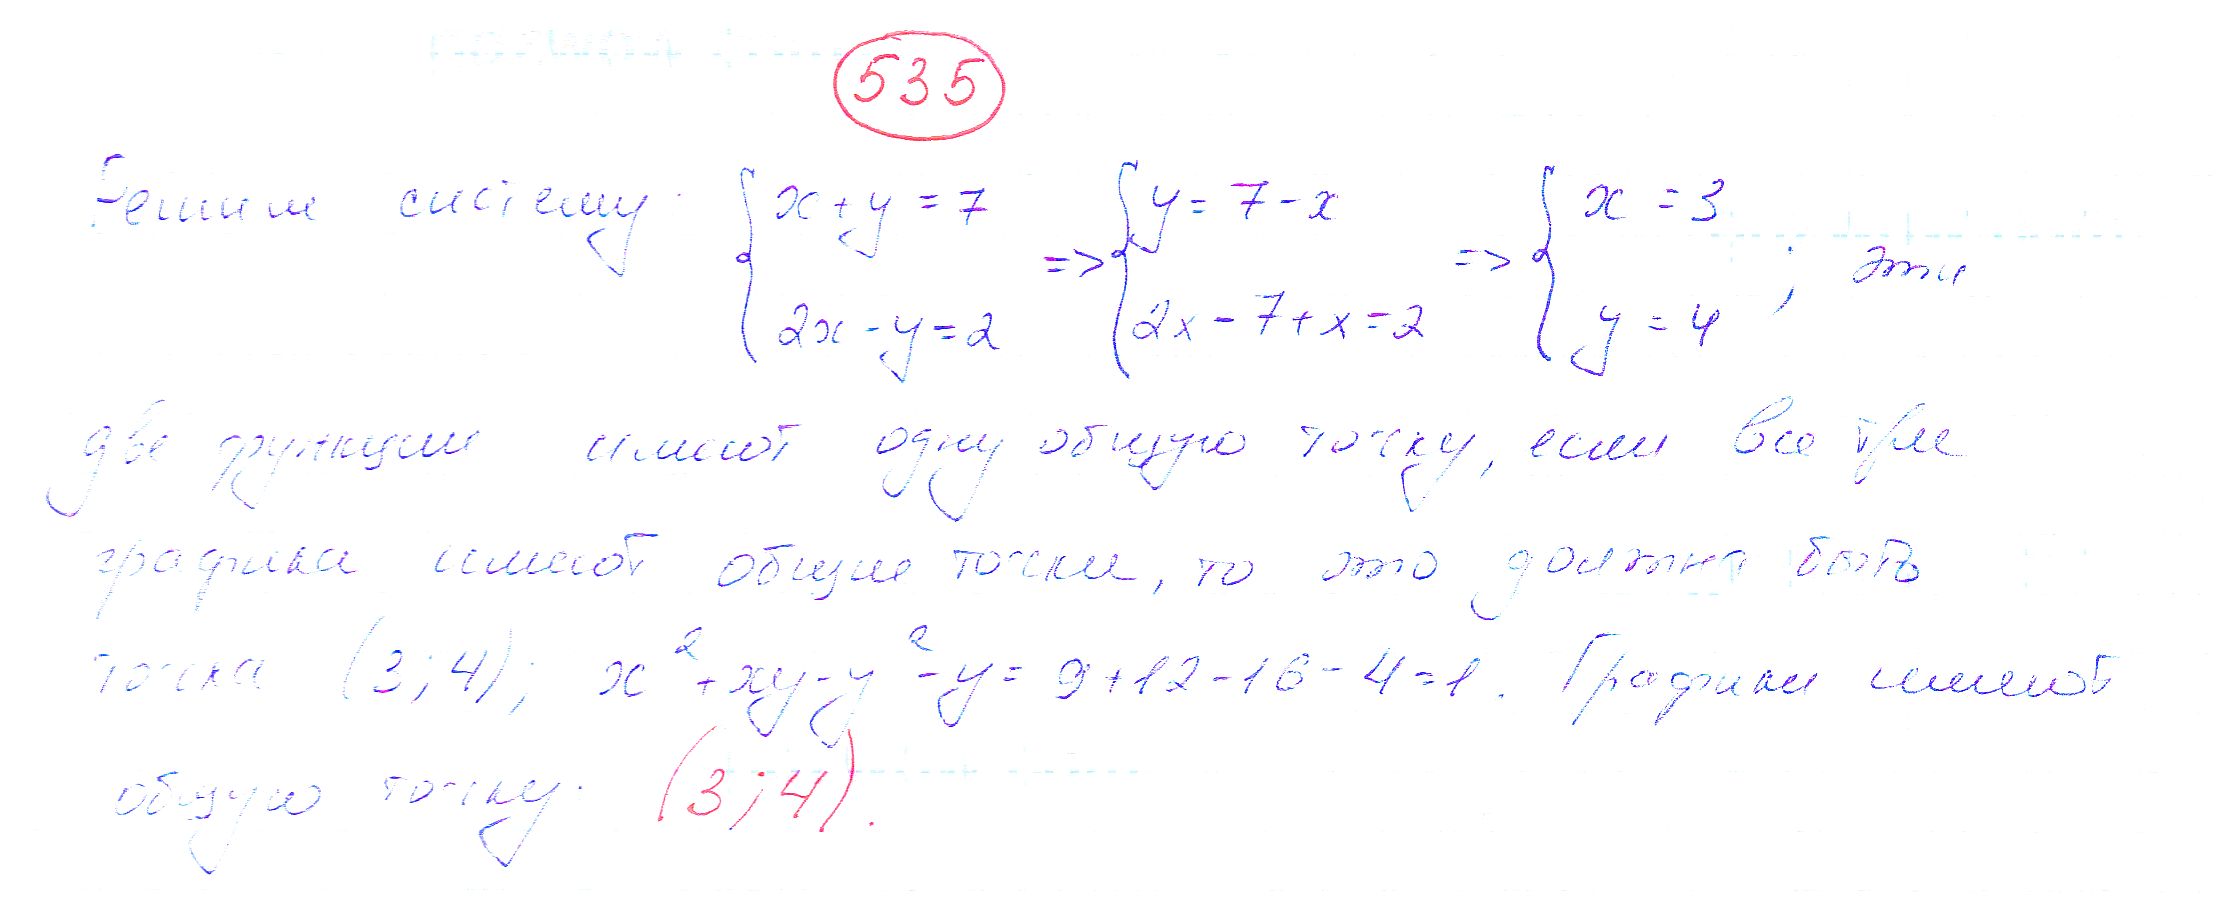 535
Решим систему: { x+y=7 => { y=7-x => { x=3 ; эти
2x-y=2 2x-7+x=2 y=4
две функции имеют одну общую точку, если все три
графики имеют общие точки, то это должна быть
точка (3;4); x²+xy-y²-y=9+12-16-4=1. Графики имеют
общую точку: (3;4).